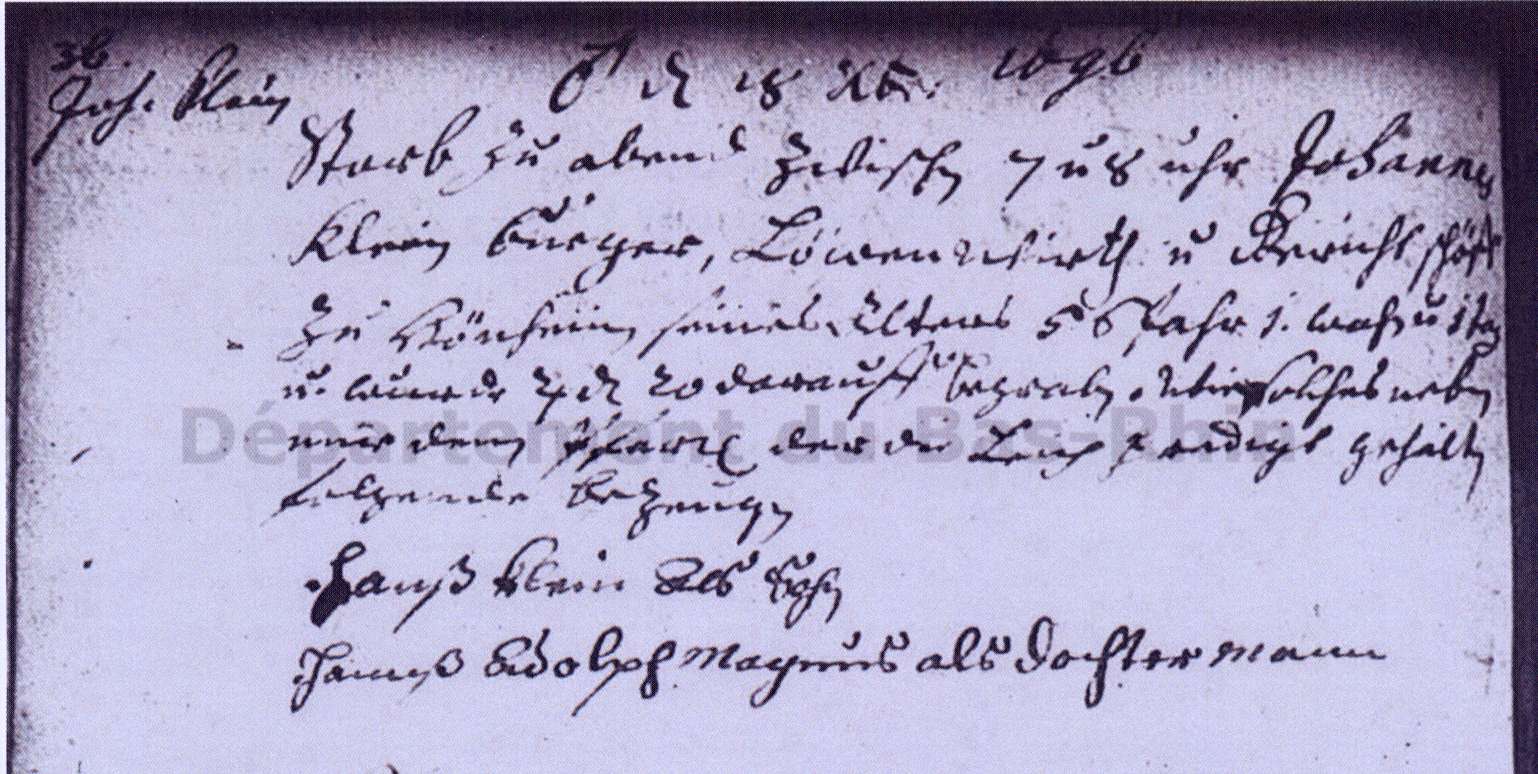 36.
Joh. Klein
d 18 Xbr. 1696
Starb zu abend zwischen 7 u 8 uhr Johannes
Klein burger, Löwenwirth u Gericht schöff
zu seines Alters 56 Jahr 1. u 1 tag
u. wurde d 20 darauff begraben. Wie solches neben
mir dem pfarrer der die Leich predigt gehalten
folgende bezeugen
Hanß Klein als Sohn
Hanß Adolph Magnus als dochtermann
Département du Bas-Rhin